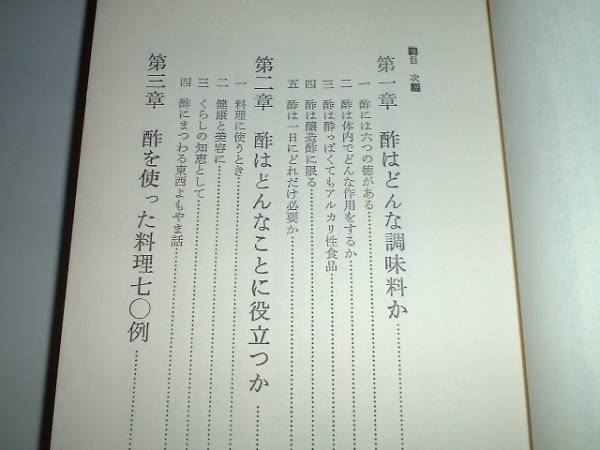 目次
第一章 酢はどんな調味料か
一 酢には六つの徳がある
二 酢は体内でどんな作用をするか
三 酢は酸っぱくてもアルカリ性食品
四 酢は醸造酢に限る
五 酢は一日にどれだけ必要か
第二章 酢はどんなことに役立つか
一 料理に使うとき
二 健康と美容に
三 くらしの知恵として
四 酢にまつわる東西よもやま話
第三章 酢を使った料理七〇例